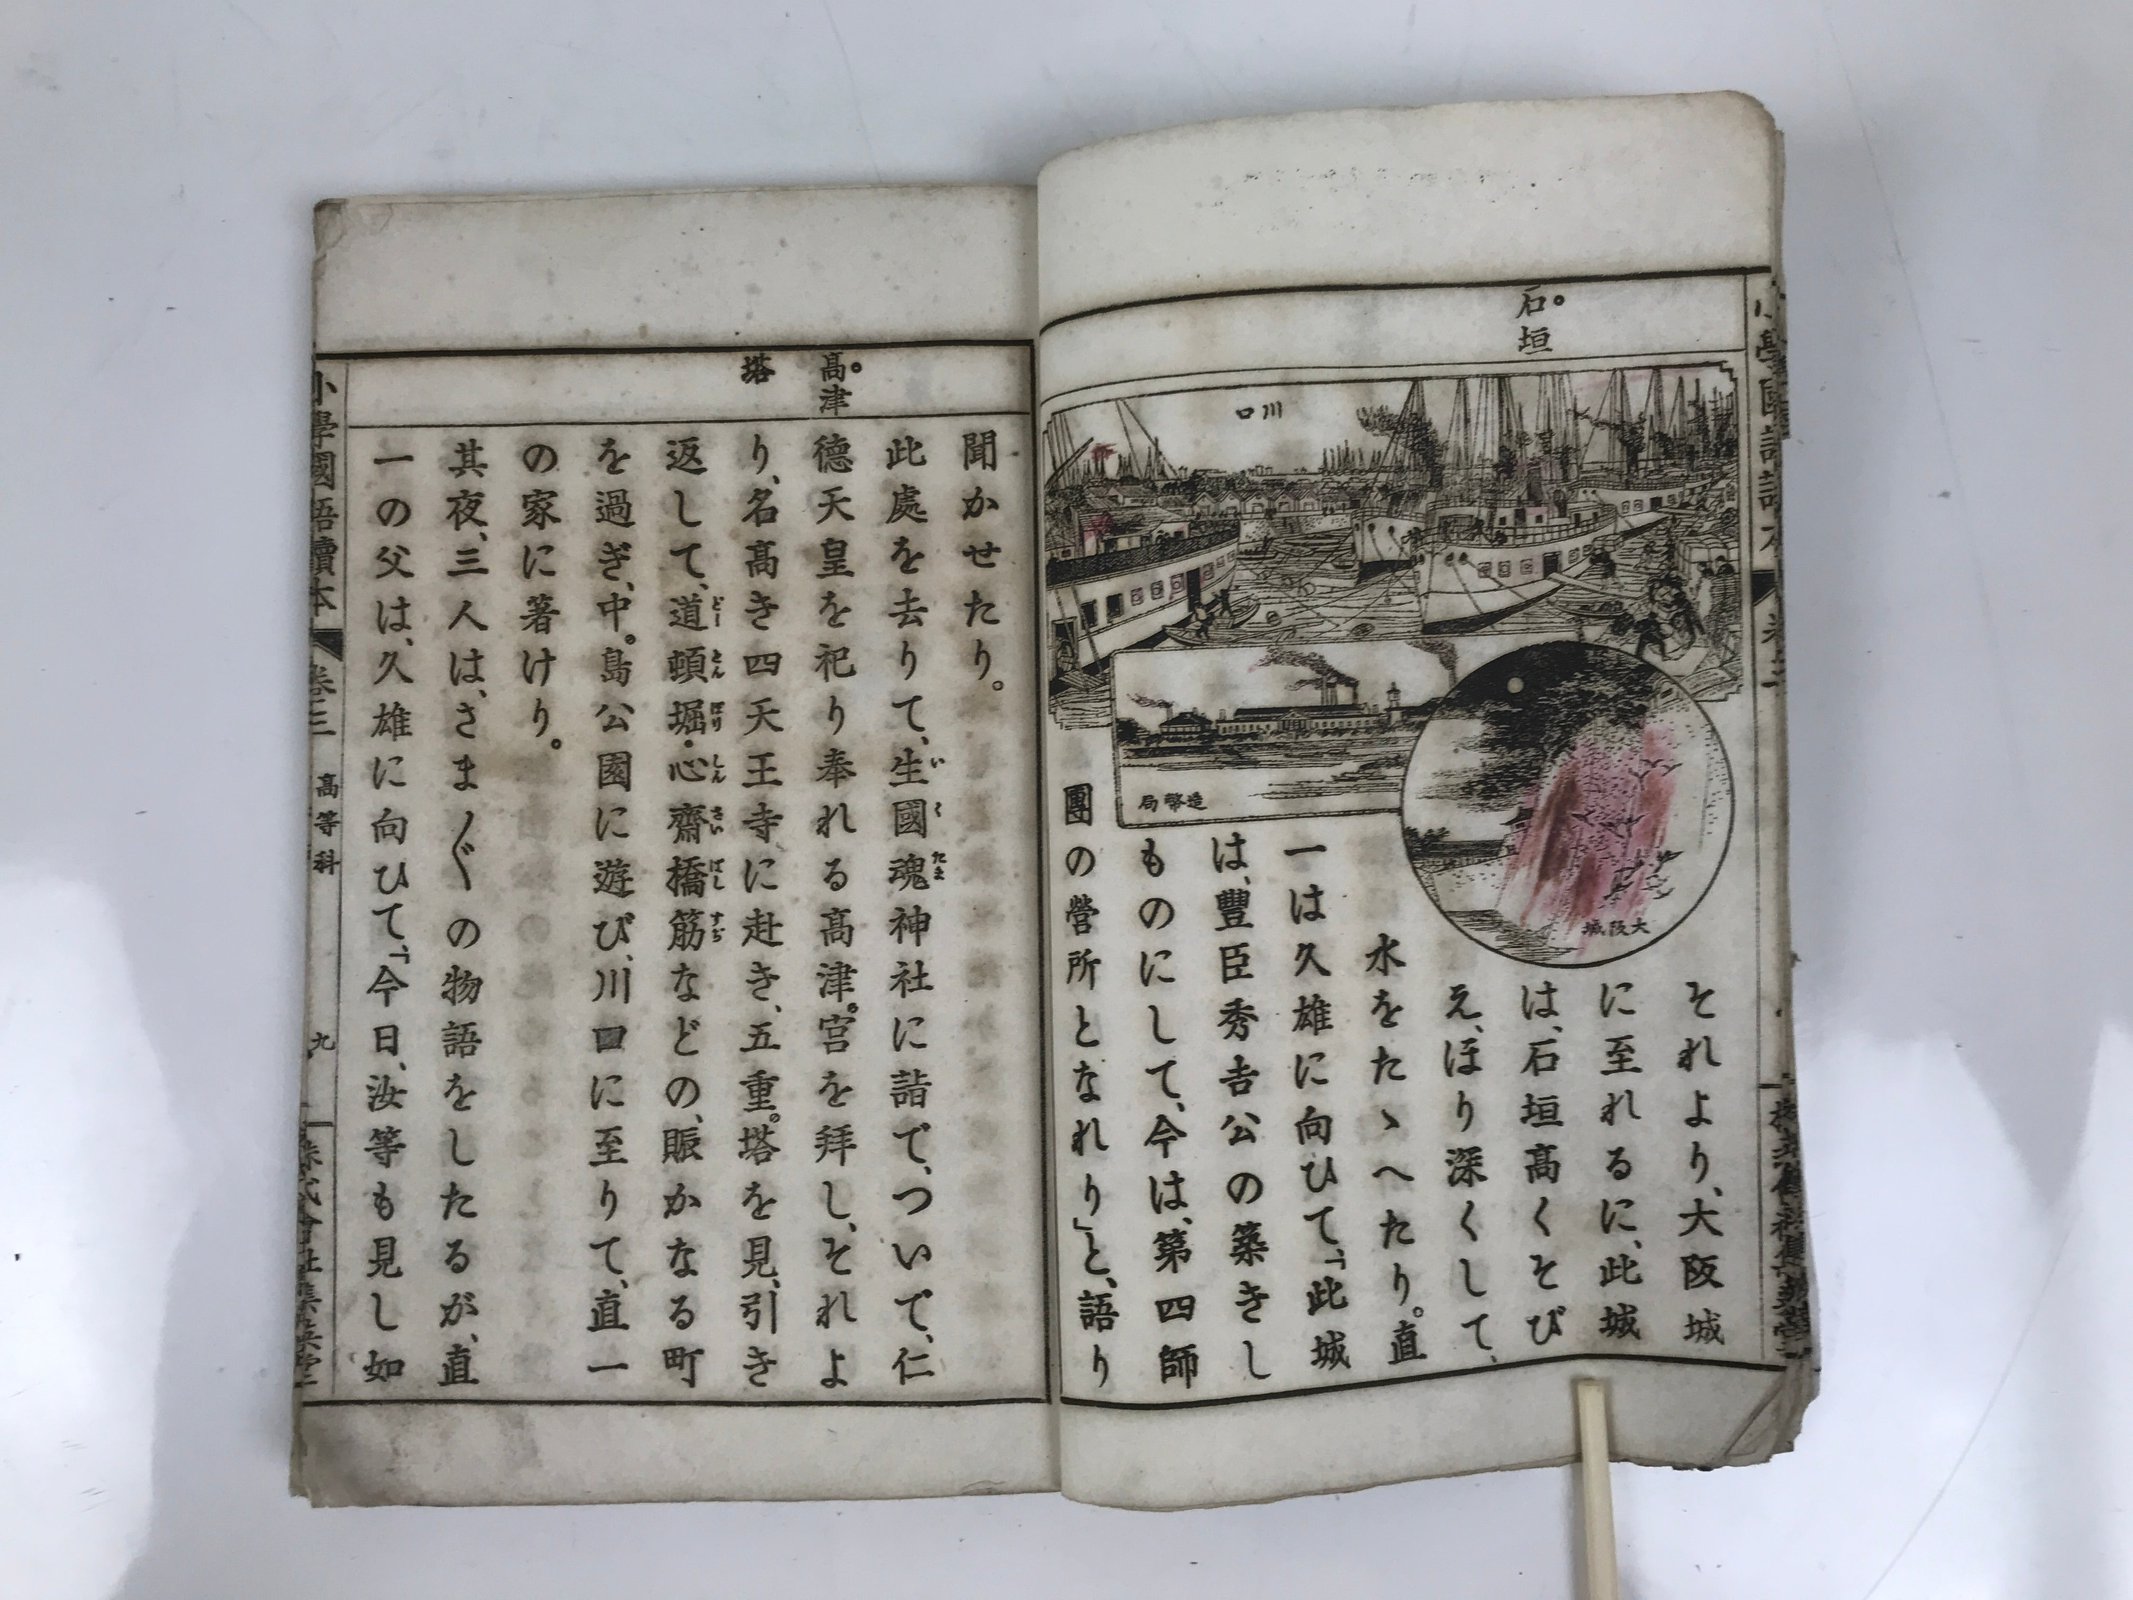 石垣
川口
造幣局
大阪城
それより、大阪城
に至れるに、此城
は、石垣高くそび
え、ほり深くして、
水をたゝへたり。直
一は久雄に向ひて、「此城
は、豐臣秀吉公の築きし
ものにして、今は、第四師
團の營所となれり」と、語り
高津
塔
聞かせたり。
此處を去りて、生國魂神社に詣で、ついで、仁
德天皇を祀り奉れる高津宮を拜し、それよ
り、名高き四天王寺に赴き、五重塔を見、引き
返して、道頓堀・心齋橋筋などの、賑かなる町
を過ぎ、中島公園に遊び、川口に至りて、直一
の家に著けり。
其夜、三人は、さま〲の物語をしたるが、直
一の父は、久雄に向ひて、「今日、汝等も見し如
小學國語讀本 卷三 高等科 九 株式會社集英堂